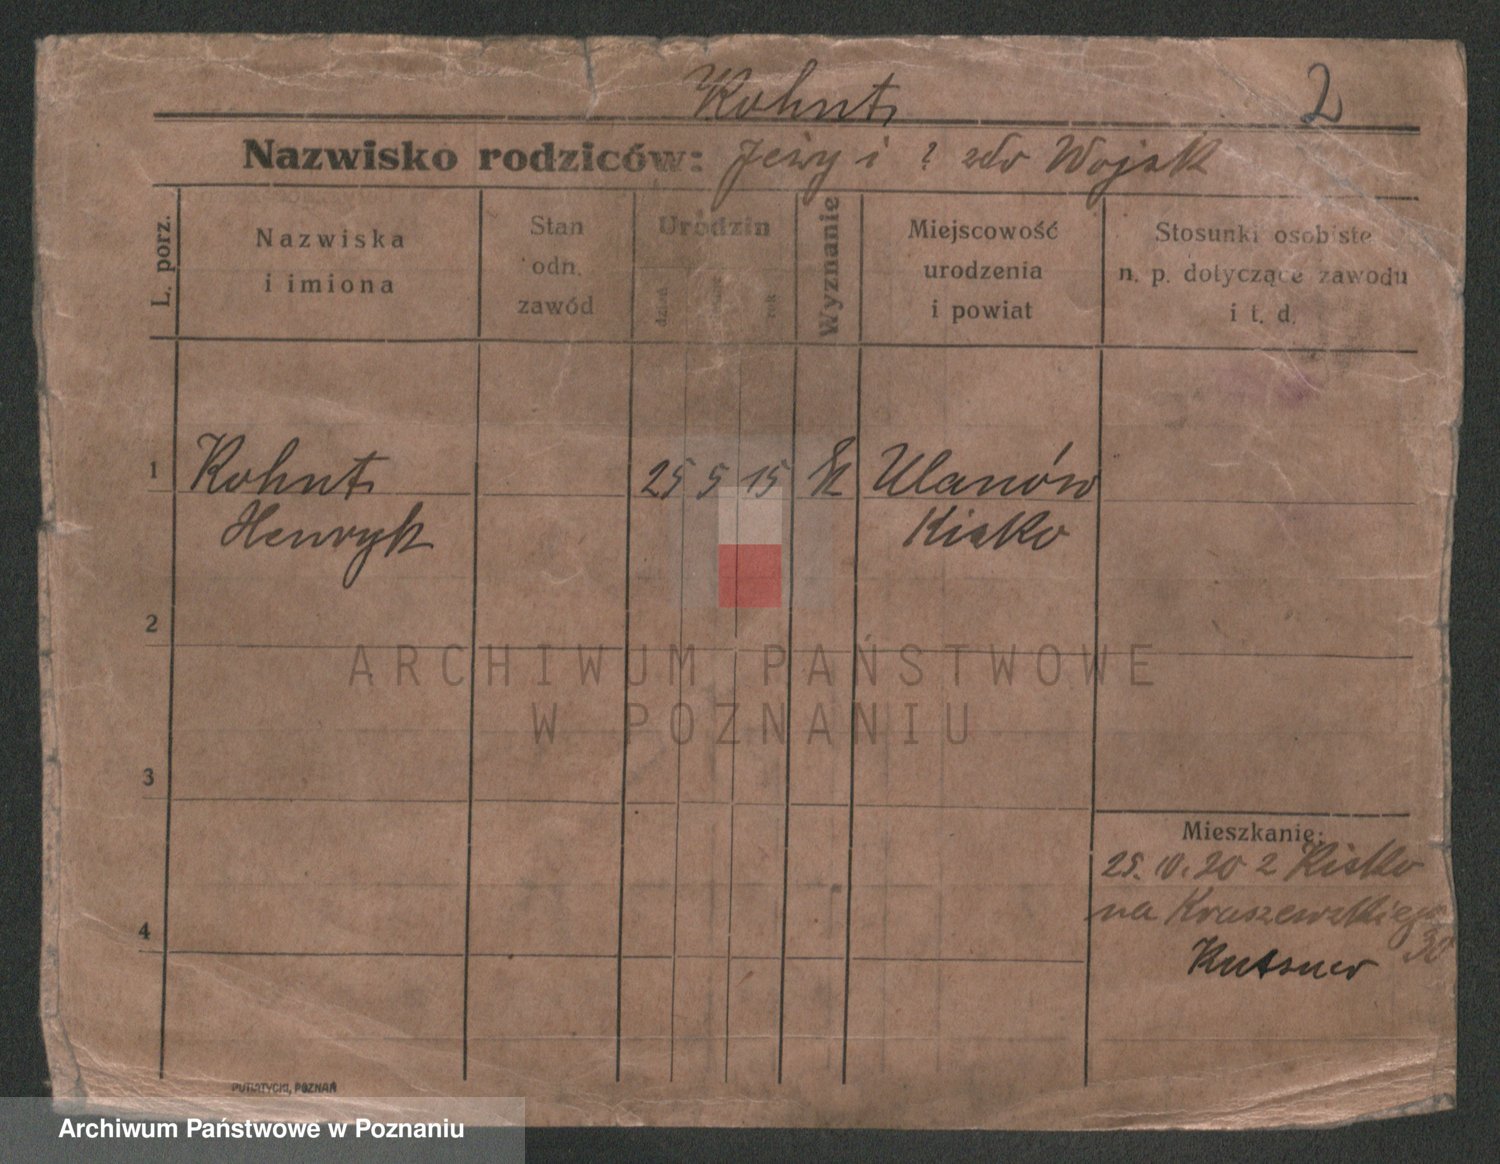 Kohnt
2
Nazwisko rodziców: Jerzy i ? zdo Wojak
L. porz.
Nazwiska
i imiona
Stan
odn.
zawód
Urodzin
dzień
rok
Wyznanie
Miejscowość
urodzenia
i powiat
Stosunki osobiste
n. p. dotyczące zawodu
i t. d.
1 Kohnt 25 5 15 Ulanów
Henryk Kisko
2
3
4
Mieszkanie:
25. 10. 20 z Kisko
na Kraszewskiego
30
Kutzner
PUTIATYCKI, POZNAŃ
ARCHIWUM PAŃSTWOWE
W POZNANIU
Archiwum Państwowe w Poznaniu